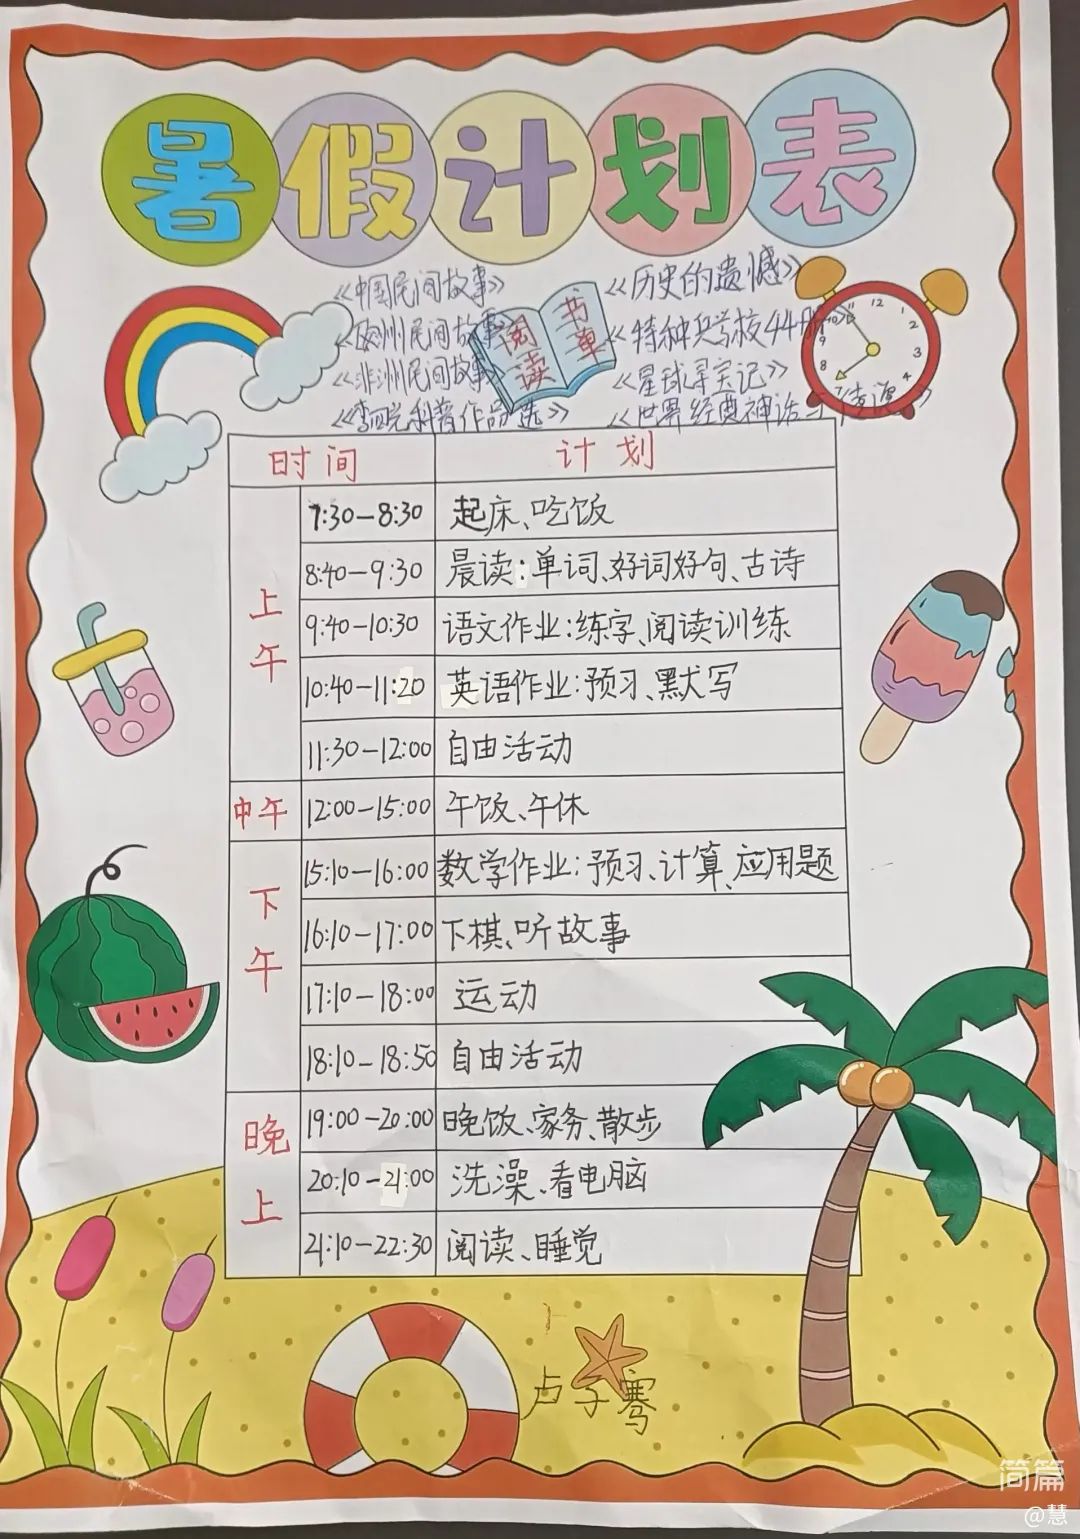 暑假计划表
《中国民间故事》
《欧洲民间故事》
《非洲民间故事》
《李四光科普作品选》
阅读
书单
《历史的遗憾》
《特种兵学校44册》
《星球寻宝记》
《世界经典神话与传说》
时间 计划
上午
7:30-8:30 起床、吃饭
8:40-9:30 晨读:单词、好词好句、古诗
9:40-10:30 语文作业:练字、阅读训练
10:40-11:20 英语作业:预习、默写
11:30-12:00 自由活动
中午 12:00-15:00 午饭、午休
下午
15:10-16:00 数学作业:预习、计算、应用题
16:10-17:00 下棋、听故事
17:10-18:00 运动
18:10-18:50 自由活动
晚上
19:00-20:00 晚饭、家务、散步
20:10-21:00 洗澡、看电脑
21:10-22:30 阅读、睡觉
卢子骞
简篇
@慧